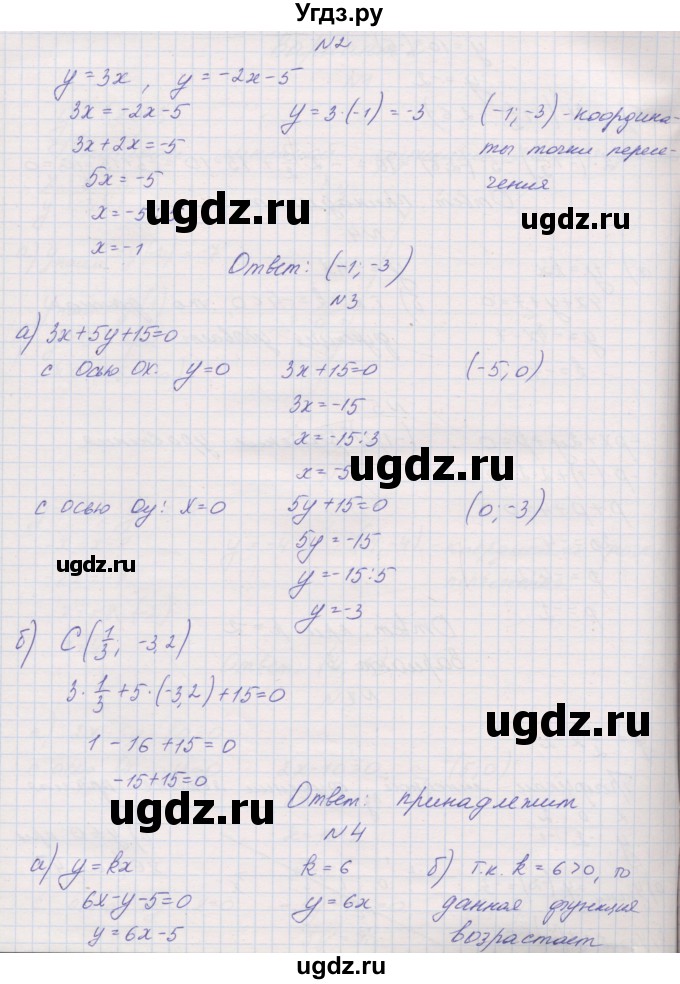 Угдз.ру
N2
y = 3x , y = -2x - 5
3x = -2x - 5 y = 3·(-1) = -3 (-1; -3) - координа-
3x + 2x = -5 ты точки пересе-
5x = -5 чения
x = -5
ugdz.ru ugdz.ru
x = -1
Ответ: (-1; -3)
ugdz.ru
N3
а) 3x + 5y + 15 = 0
с осью ох. y = 0 3x + 15 = 0 (-5; 0)
3x = -15
x = -15:3
x = -5
ugdz.ru
с осью оу: x = 0 5y + 15 = 0 (0; -3)
5y = -15
ugdz.ru
y = -15:5
y = -3
б) C(1/3; -3,2)
3·1/3 + 5·(-3,2) + 15 = 0
ugdz.ru
1 - 16 + 15 = 0
-15 + 15 = 0
ugdz.ru
Ответ: принадлежит
N4
а) y = kx k = 6 б) т.к. k = 6 > 0, то
6x - y - 5 = 0 y = 6x данная функция
y = 6x - 5 возрастает
ugdz.ru
ugdz.ru